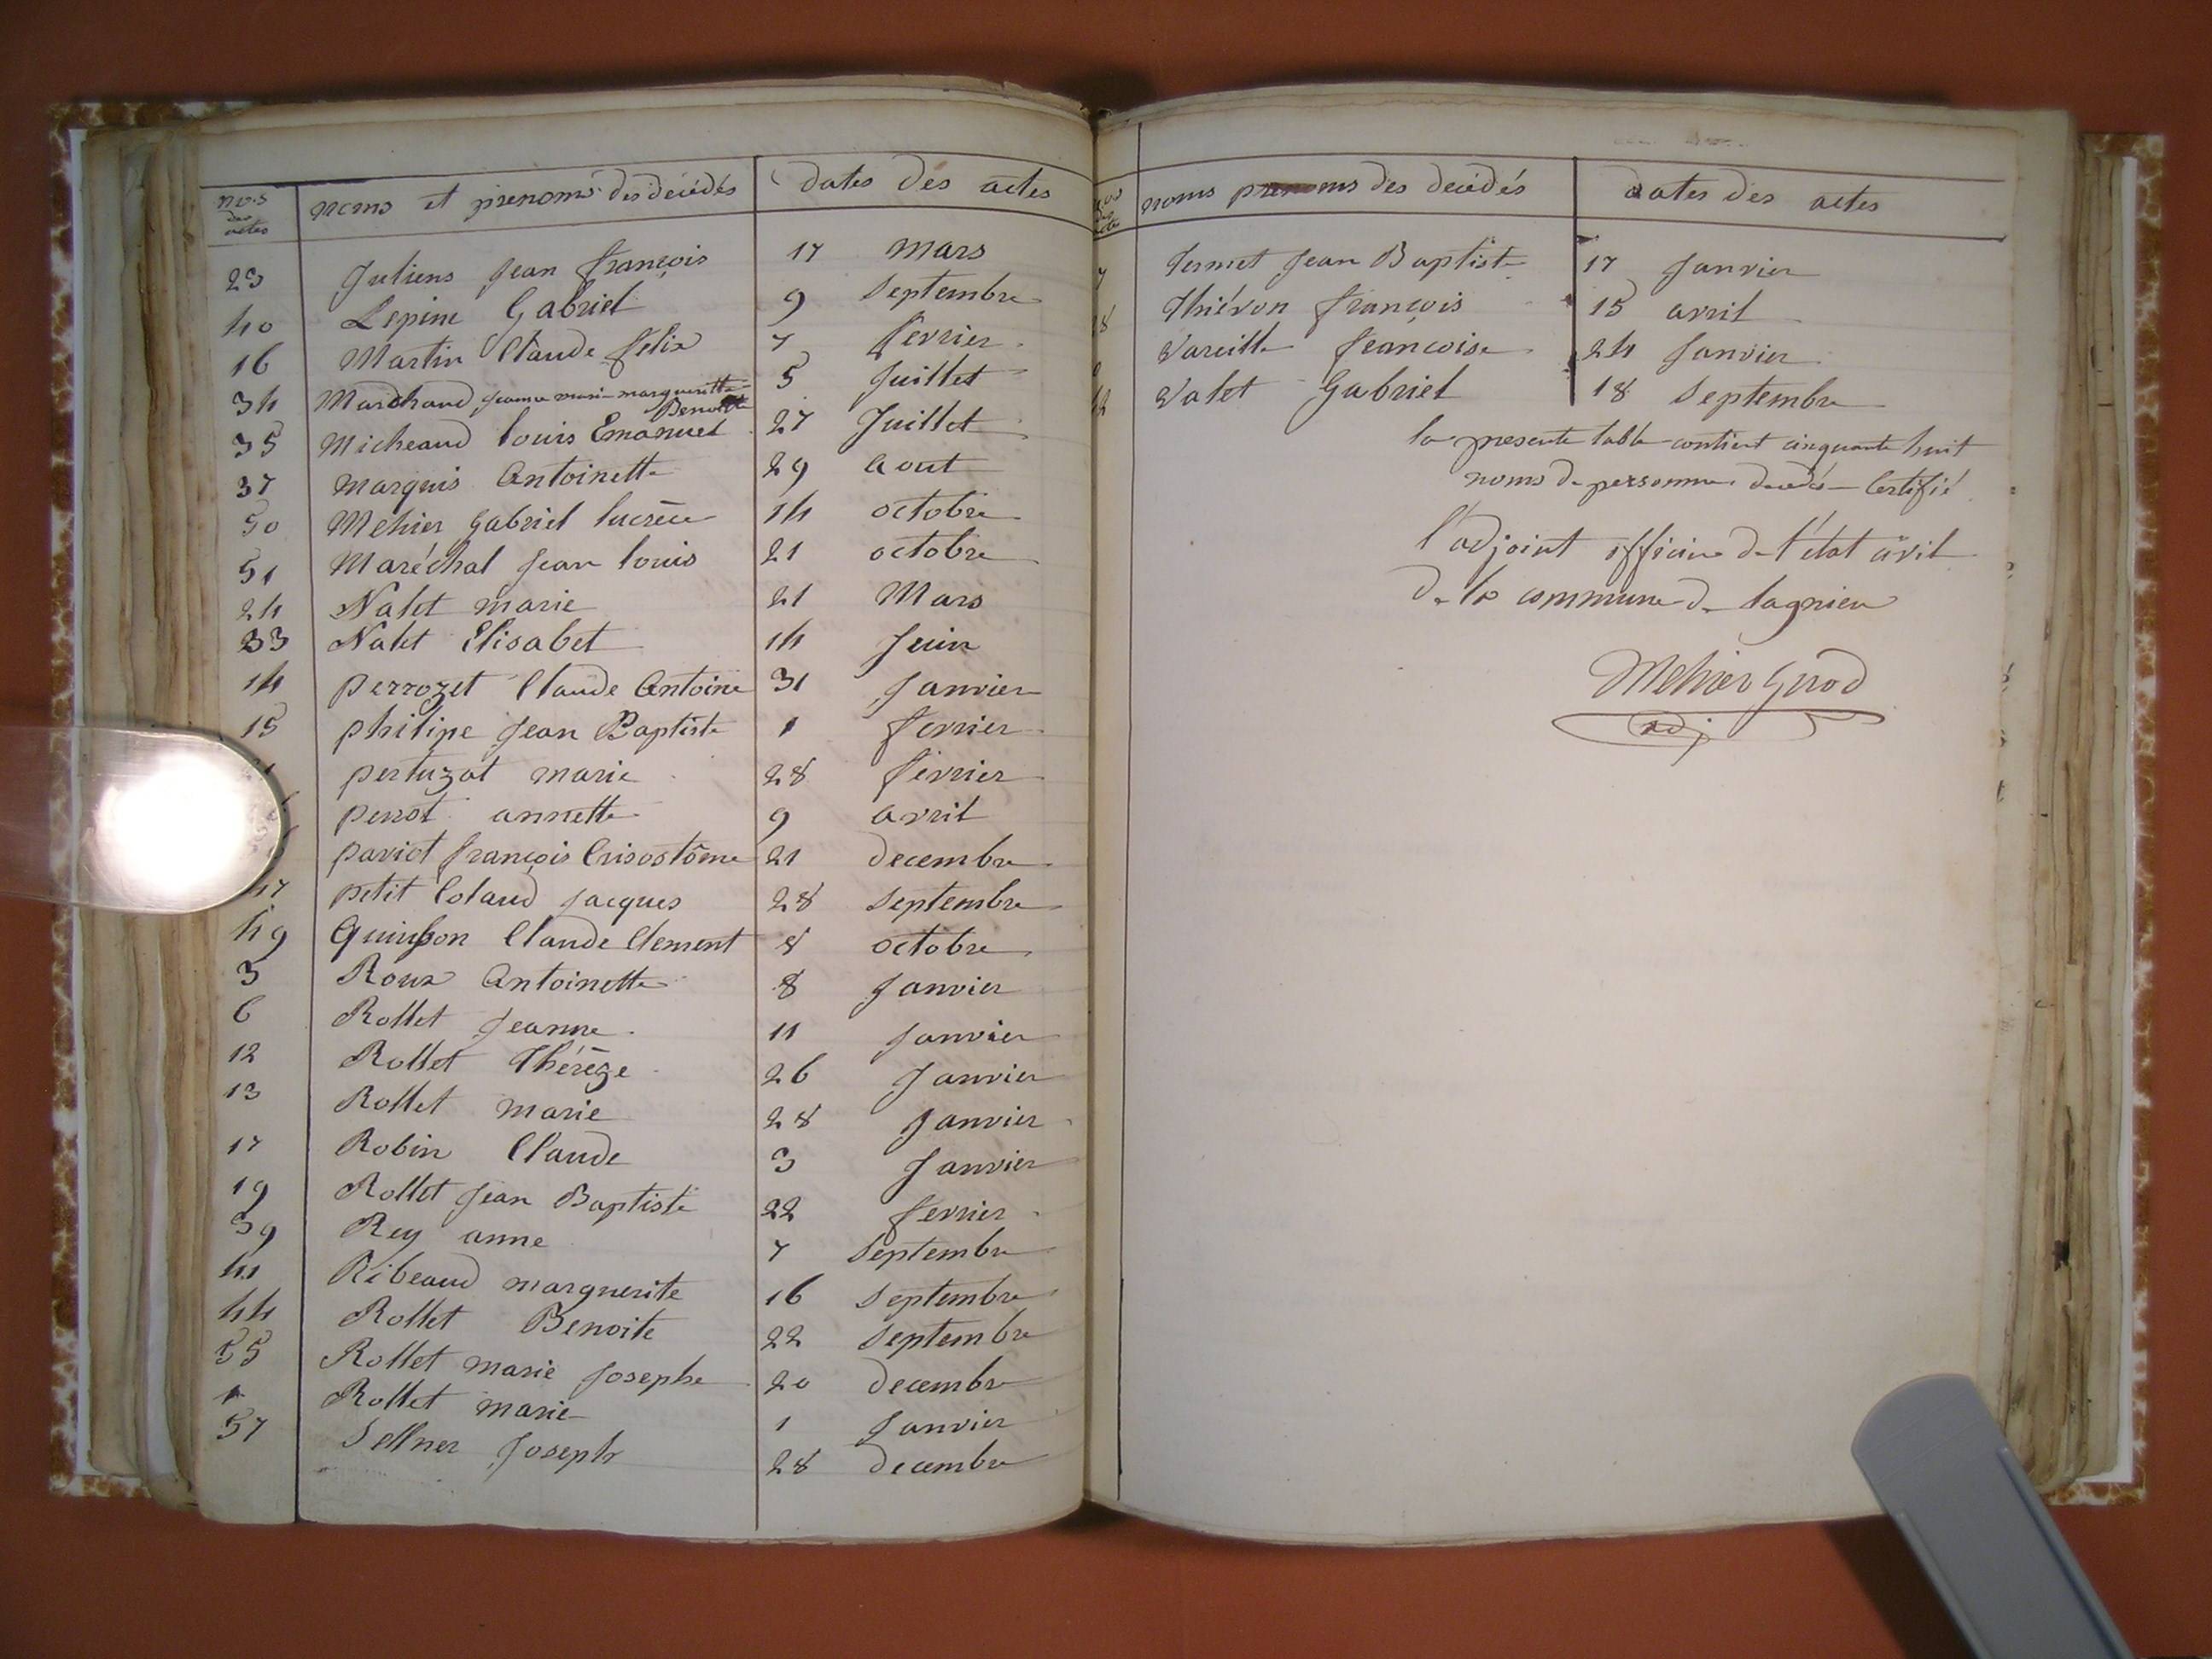 nos des actes noms et prenoms des décédés dates des actes
23 Juliens Jean françois 17 mars
40 Lepine Gabriel 9 Septembre
16 Martin Claude felix 7 fevrier
34 Marchand jeanne marie margueritte Benoite 5 Juillet
35 Micheaud louis Emanuel 27 Juillet
37 Marquis Antoinette 29 aout
50 Mehier Gabriel lucrèce 14 octobre
51 Maréchal Jean louis 21 octobre
24 Nalet marie 21 Mars
33 Nalet Elisabet 14 Juin
14 perrozet Claude Antoine 31 Janvier
15 philipe Jean Baptiste 1 fevrier
pertuzat marie 28 fevrier
perrot annette 9 avril
pariot françois Crisostôme 21 decembre
47 petit Colaud jacques 28 Septembre
49 Quinson Claude Clement 8 octobre
3 Roux Antoinette 8 Janvier
6 Rollet Jeanne 11 Janvier
12 Rollet Thérèze 26 Janvier
13 Rollet marie 28 Janvier
17 Robin Claude 3 Janvier
19 Rollet Jean Baptiste 22 fevrier
39 Rey anne 7 Septembre
41 Ribeaud marguerite 16 Septembre
44 Rollet Benoite 22 Septembre
55 Rollet marie Josephe 20 decembre
1 Rollet marie 1 Janvier
57 Sellner Joseph 28 decembre
noms prenoms des decédés dates des actes
7 Jean Baptiste 17 Janvier
Thiévon françois 15 avril
Vareille francoise 24 Janvier
Valet Gabriel 18 Septembre
la presente table contient cinquante huit
noms de personnes decédé Certifié
l'adjoint officier de l'état civil
de la commune de lagnieu
Mehier Girod
adj